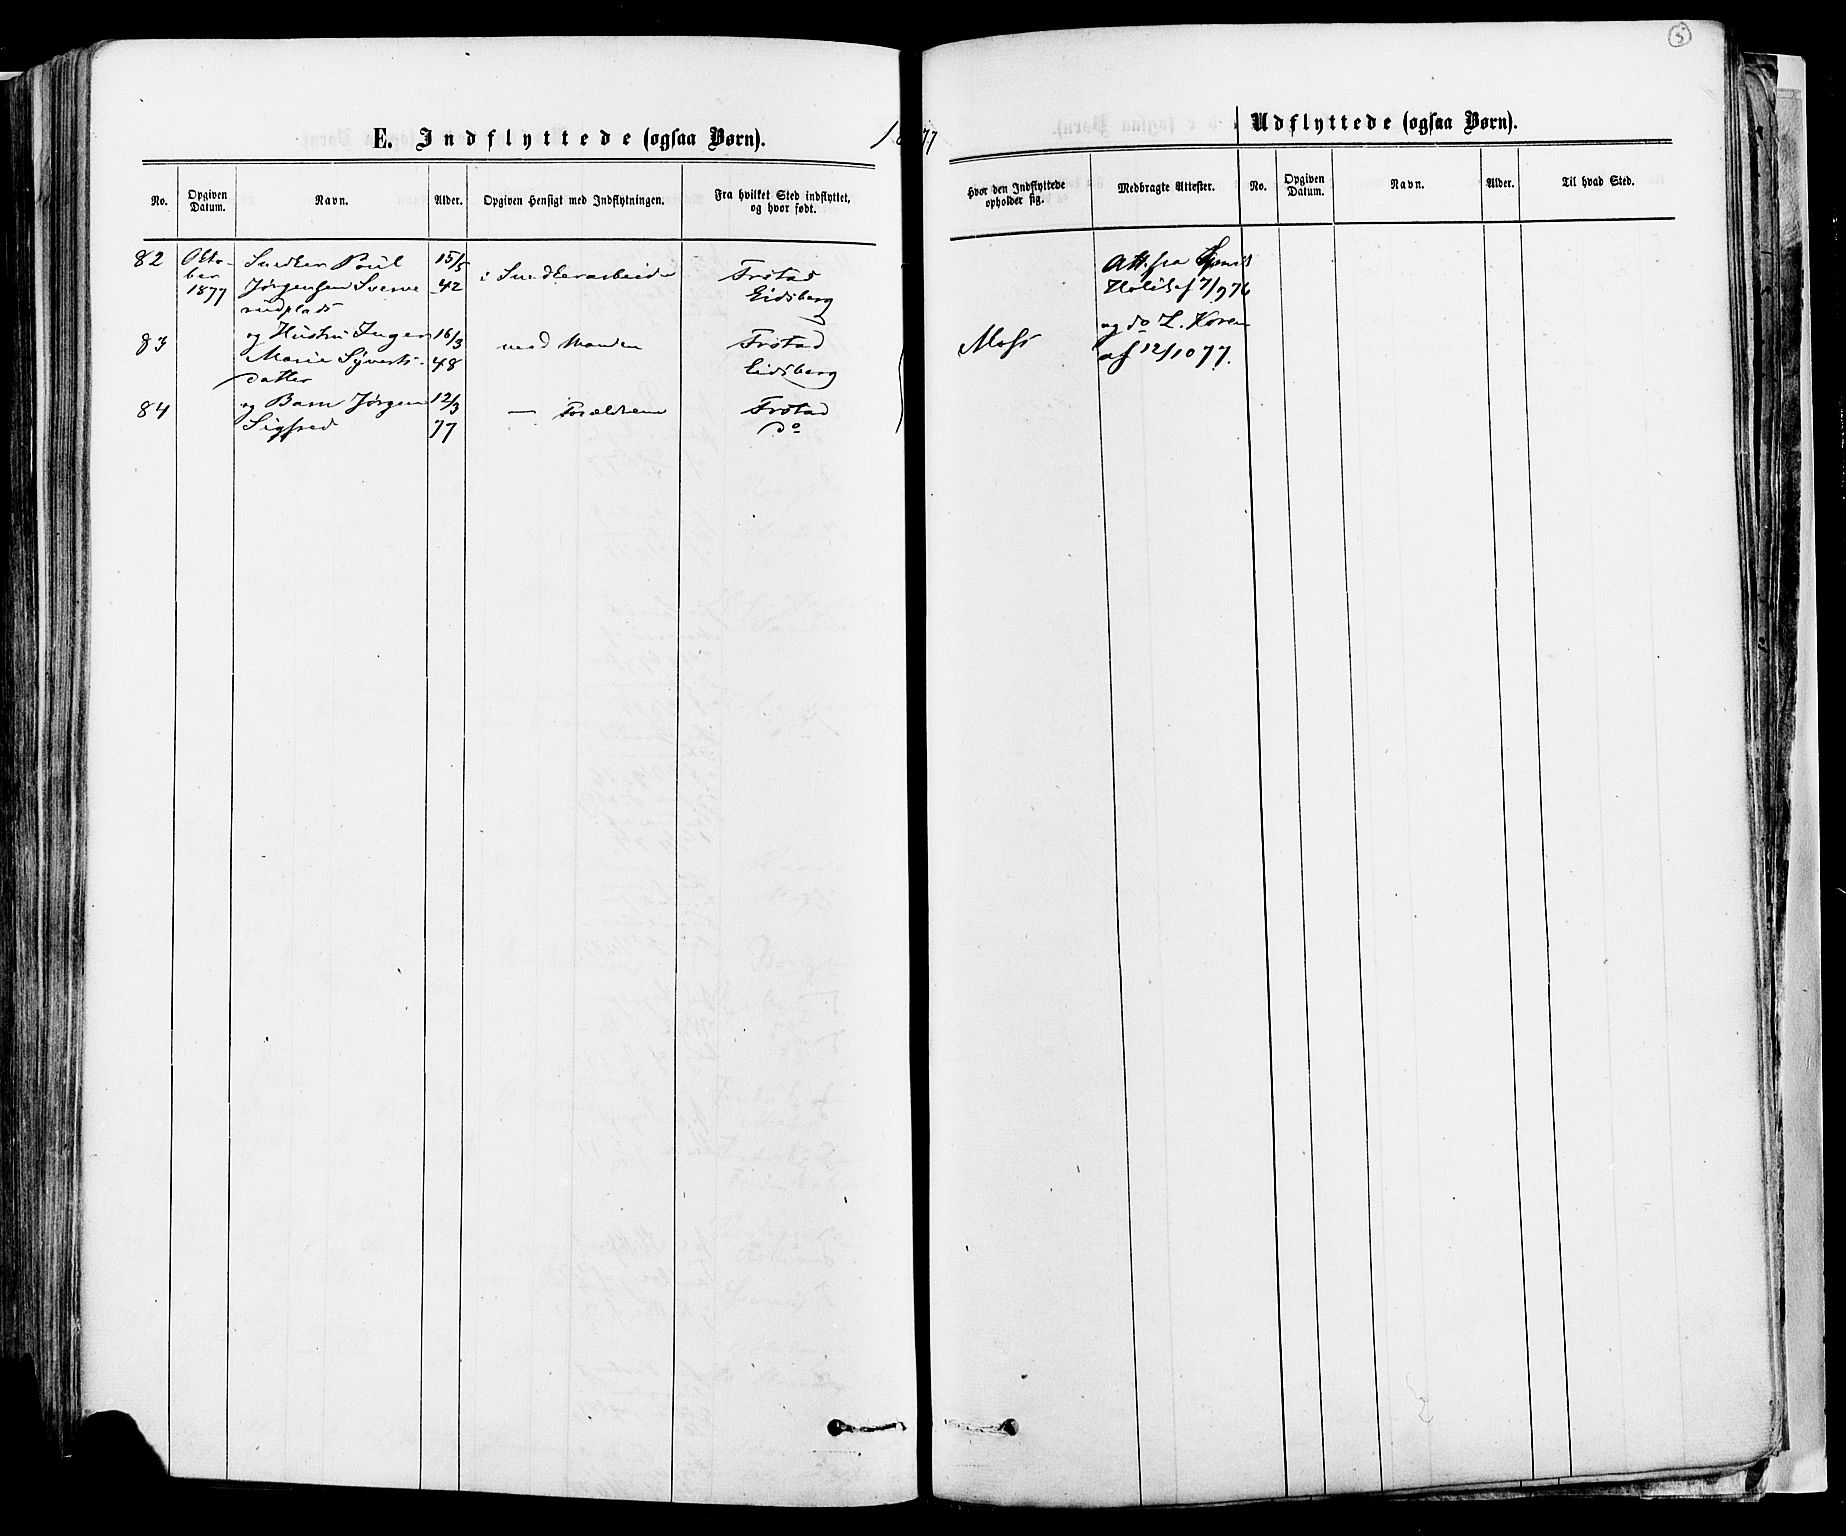 5
E. Indflyttede (ogsaa Børn).
1877
Udflyttede (ogsaa Børn).
No.
Opgiven Datum.
Navn.
Alder.
Opgiven Hensigt med Indflytningen.
Fra hvilket Sted indflyttet, og hvor født.
Hvor den Indflyttede opholder sig.
Medbragte Attester.
No.
Opgiven Datum.
Navn.
Alder.
Til hvad Sted.
82
Okto-
ber
1877
Snedker Poul
Jørgensen
rudplads
15/5
42
i Snedkerarbeide
Trøstad
Eidsberg
Att. fra
7/9 76
83
og Hustru Inger
Marie Syverts-
datter
16/3
48
med Manden
Trøstad
Eidsberg
Moss
og do L. Koren
af 12/10 77.
84
og Barn Jørgen
Sigfred
12/3
77
— Forældrene
Trøstad
do